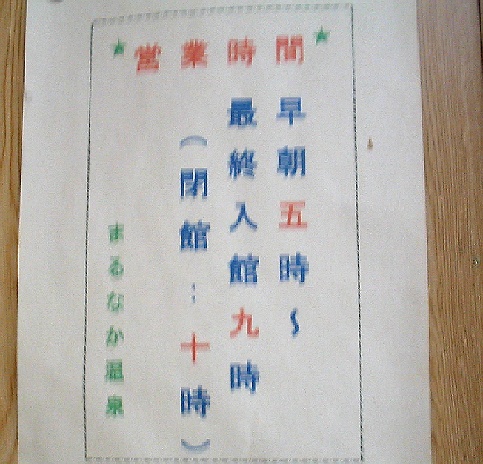 ★営業時間★
早朝五時~
最終入館九時
(閉館:十時)
まるなか温泉